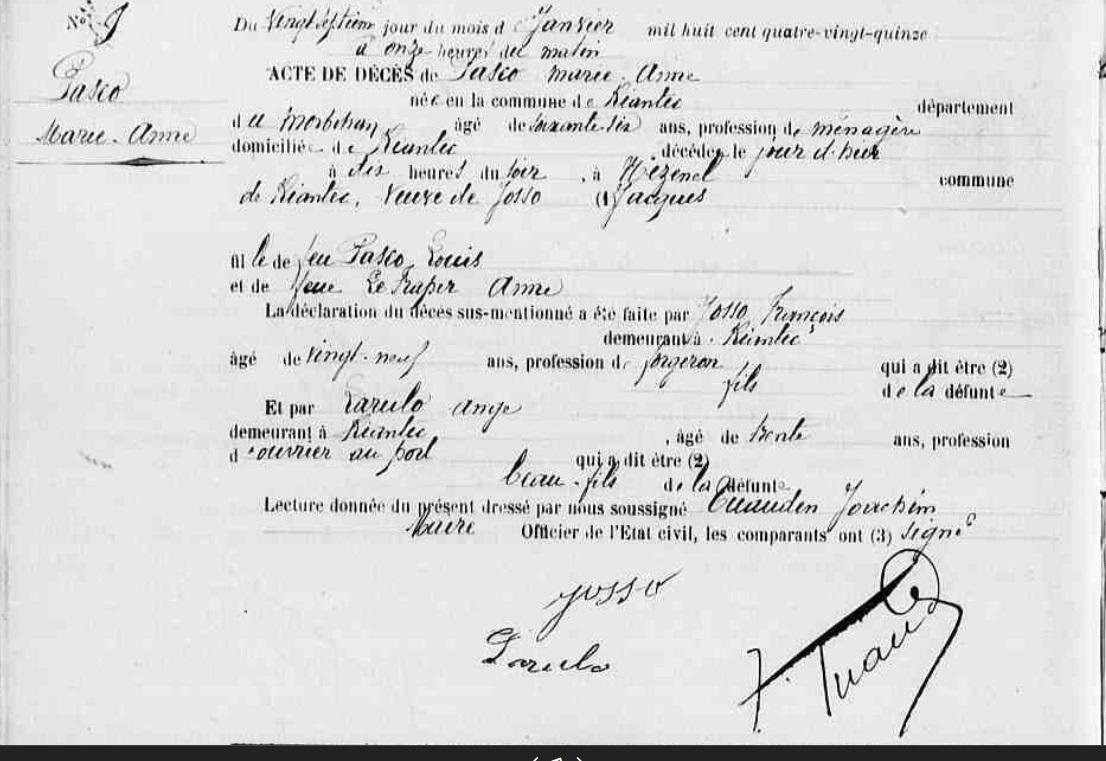 N° 9
Pasco
Marie-Anne
Du Vingt septième jour du mois de Janvier mil huit cent quatre-vingt-quinze
à onze heures du matin
ACTE DE DÉCÈS de Pasco Marie-Anne
née en la commune de Riantec département
du Morbihan âgé de soixante-six ans, profession de ménagère
domiciliée de Riantec, décédée le jour d'hier
à dix heures du soir, à commune
de Riantec, Veuve de Josso (1) Jacques
fille de feu Pasco Louis
et de feue Anne
La déclaration du décès sus-mentionné a été faite par Josso François
demeurant à Riantec
âgé de vingt-neuf ans, profession de forgeron qui a dit être (2)
fils de la défunte
Et par Ange
demeurant à Riantec, âgé de trente ans, profession
d'ouvrier au port qui a dit être (2)
beau-fils de la défunte
Lecture donnée du présent dressé par nous soussigné Joachim
Maire Officier de l'Etat civil, les comparants ont (3) signé
Josso